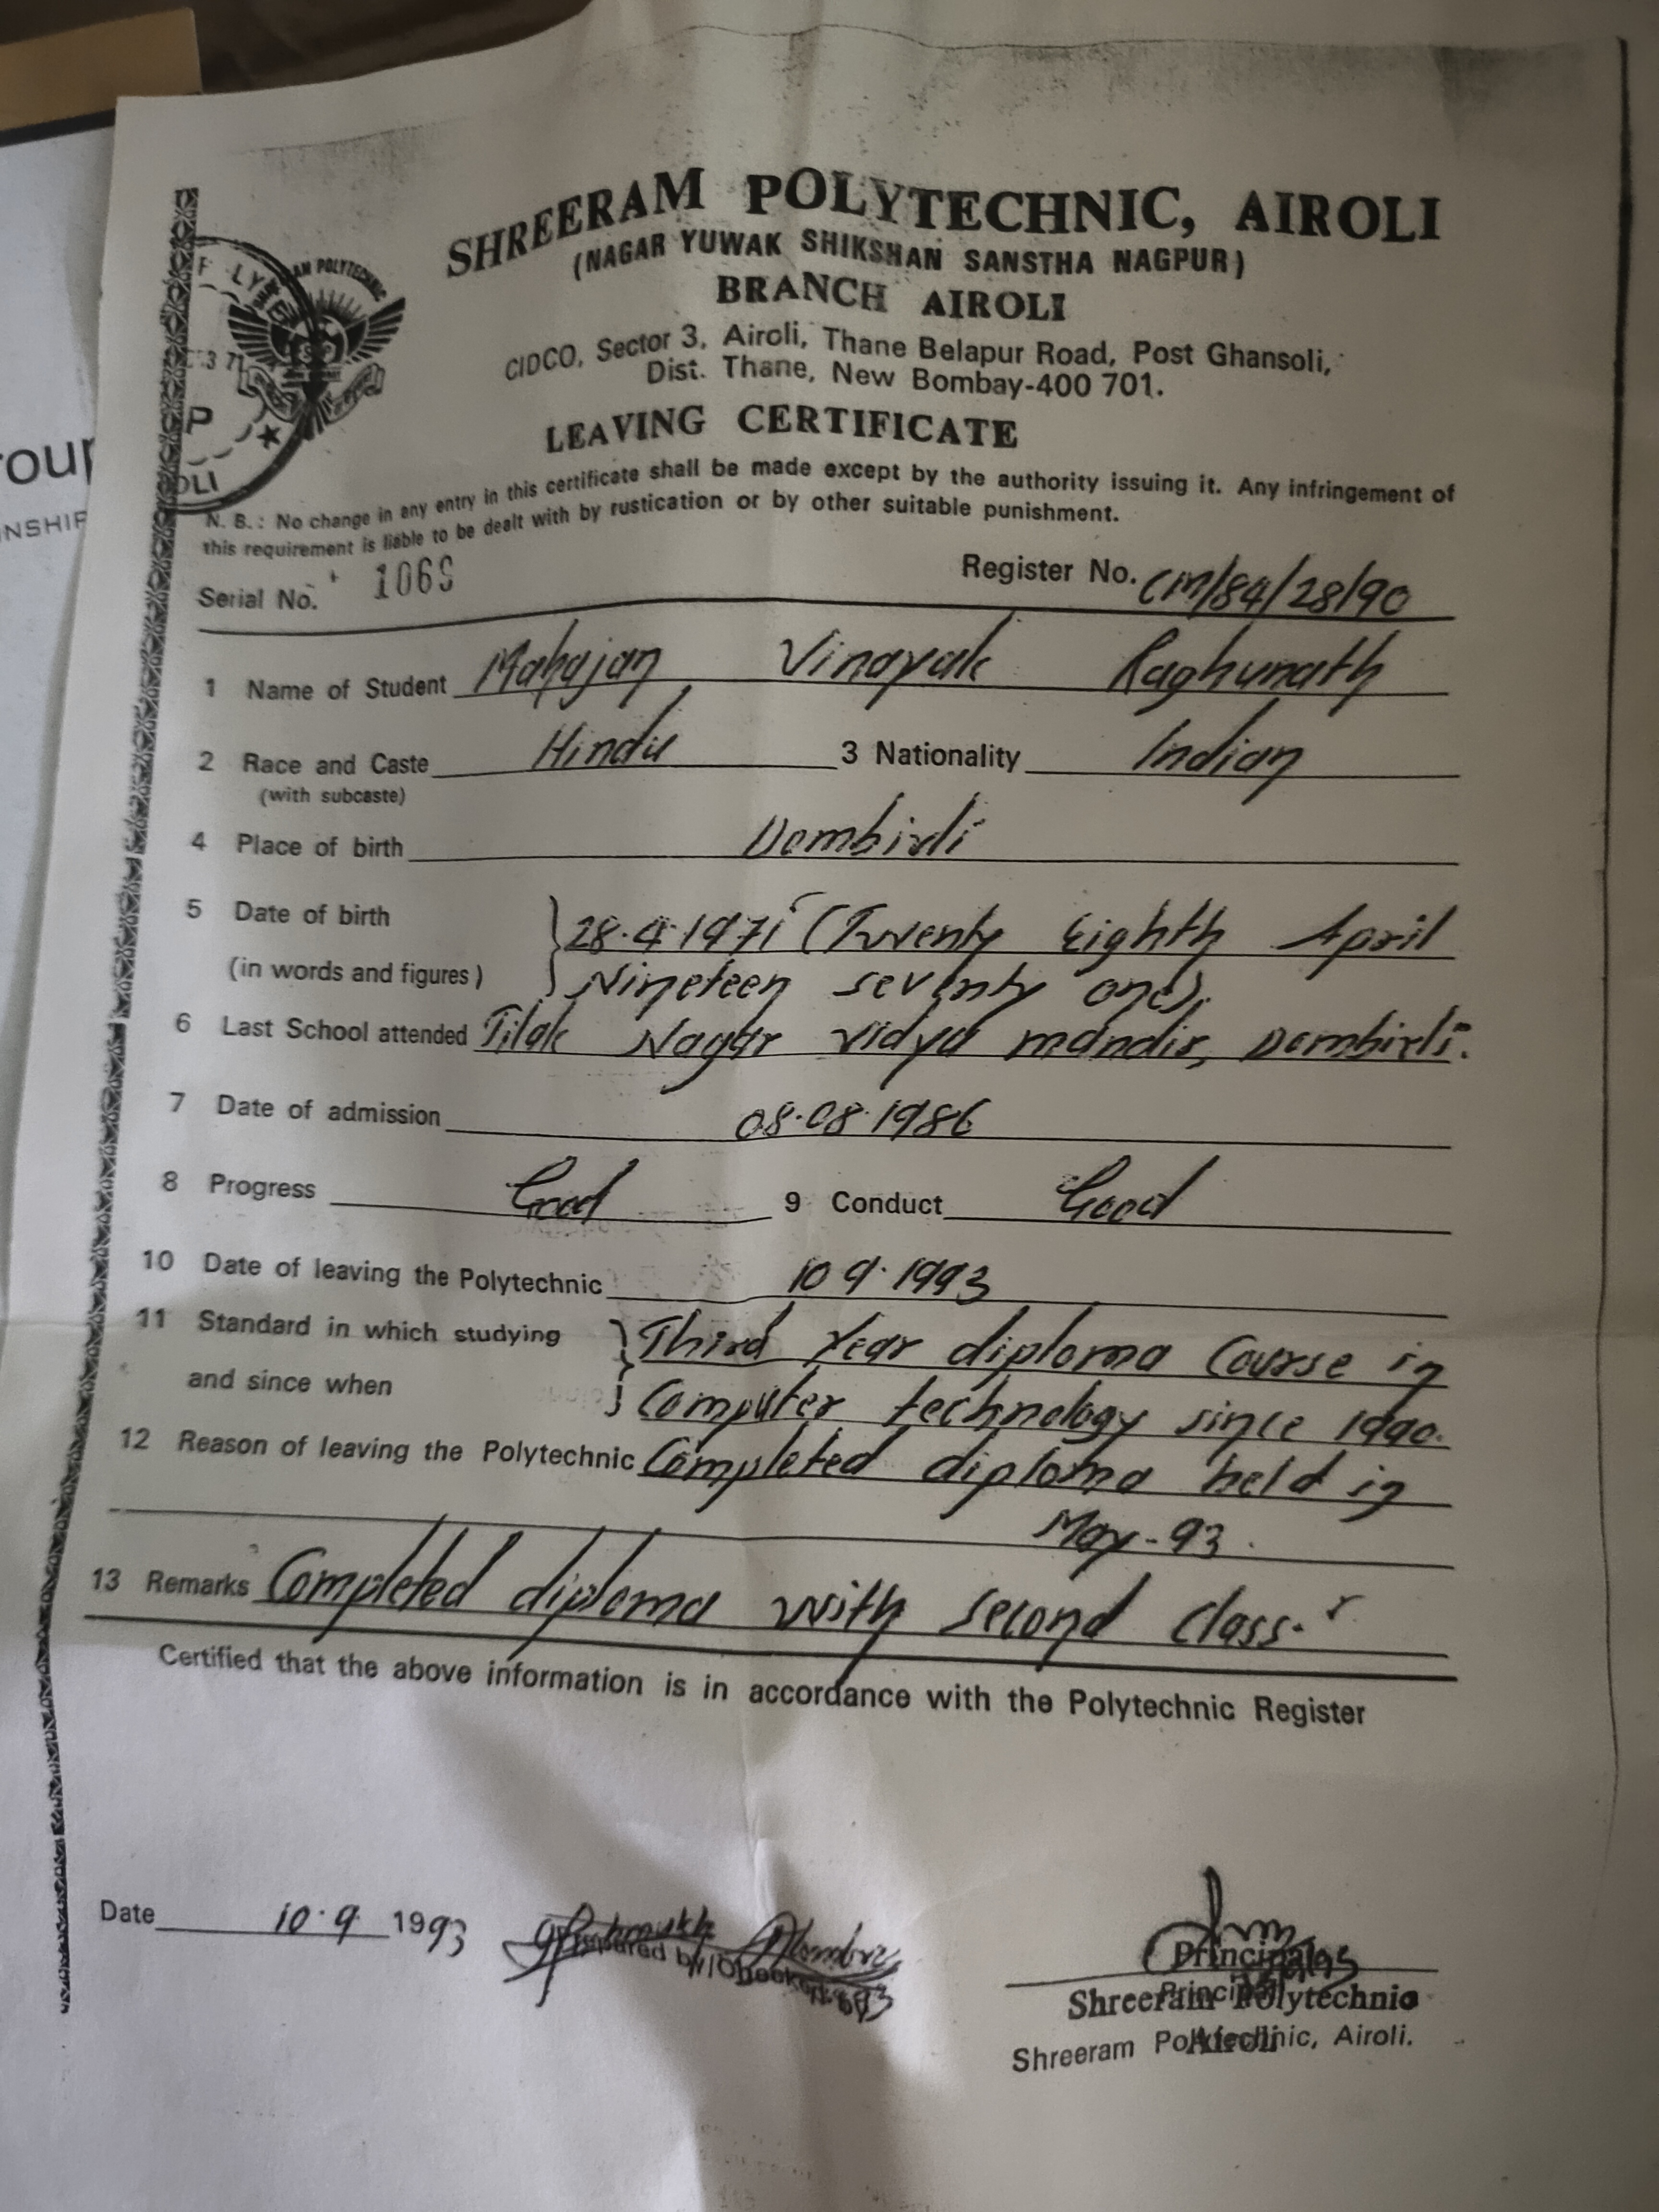 SHREERAM POLYTECHNIC, AIROLI
(NAGAR YUWAK SHIKSHAN SANSTHA NAGPUR)
BRANCH AIROLI
CIDCO, Sector 3, Airoli, Thane Belapur Road, Post Ghansoli,
Dist. Thane, New Bombay-400 701.
LEAVING CERTIFICATE
N. B.: No change in any entry in this certificate shall be made except by the authority issuing it. Any infringement of
this requirement is liable to be dealt with by rustication or by other suitable punishment.
Serial No. 1069 Register No. CM/84/28/90
1 Name of Student Mahajan Vinayak Raghunath
2 Race and Caste Hindu 3 Nationality Indian
(with subcaste)
4 Place of birth Dombivli
5 Date of birth 28.4.1971 (Twenty Eighth April
(in words and figures) Nineteen seventy one).
6 Last School attended Tilak Nagar vidya mandir, Dombivli.
7 Date of admission 08.08.1986
8 Progress Good 9 Conduct Good
10 Date of leaving the Polytechnic 10 9.1993
11 Standard in which studying Third Year diploma Course in
and since when Computer technology since 1990.
12 Reason of leaving the Polytechnic Completed diploma held in
May-93.
13 Remarks Completed diploma with second class.
Certified that the above information is in accordance with the Polytechnic Register
Date 10.9 1993
Principal
Shreeram Polytechnic
Airoli
Principal
Shreeram Polytechnic, Airoli.